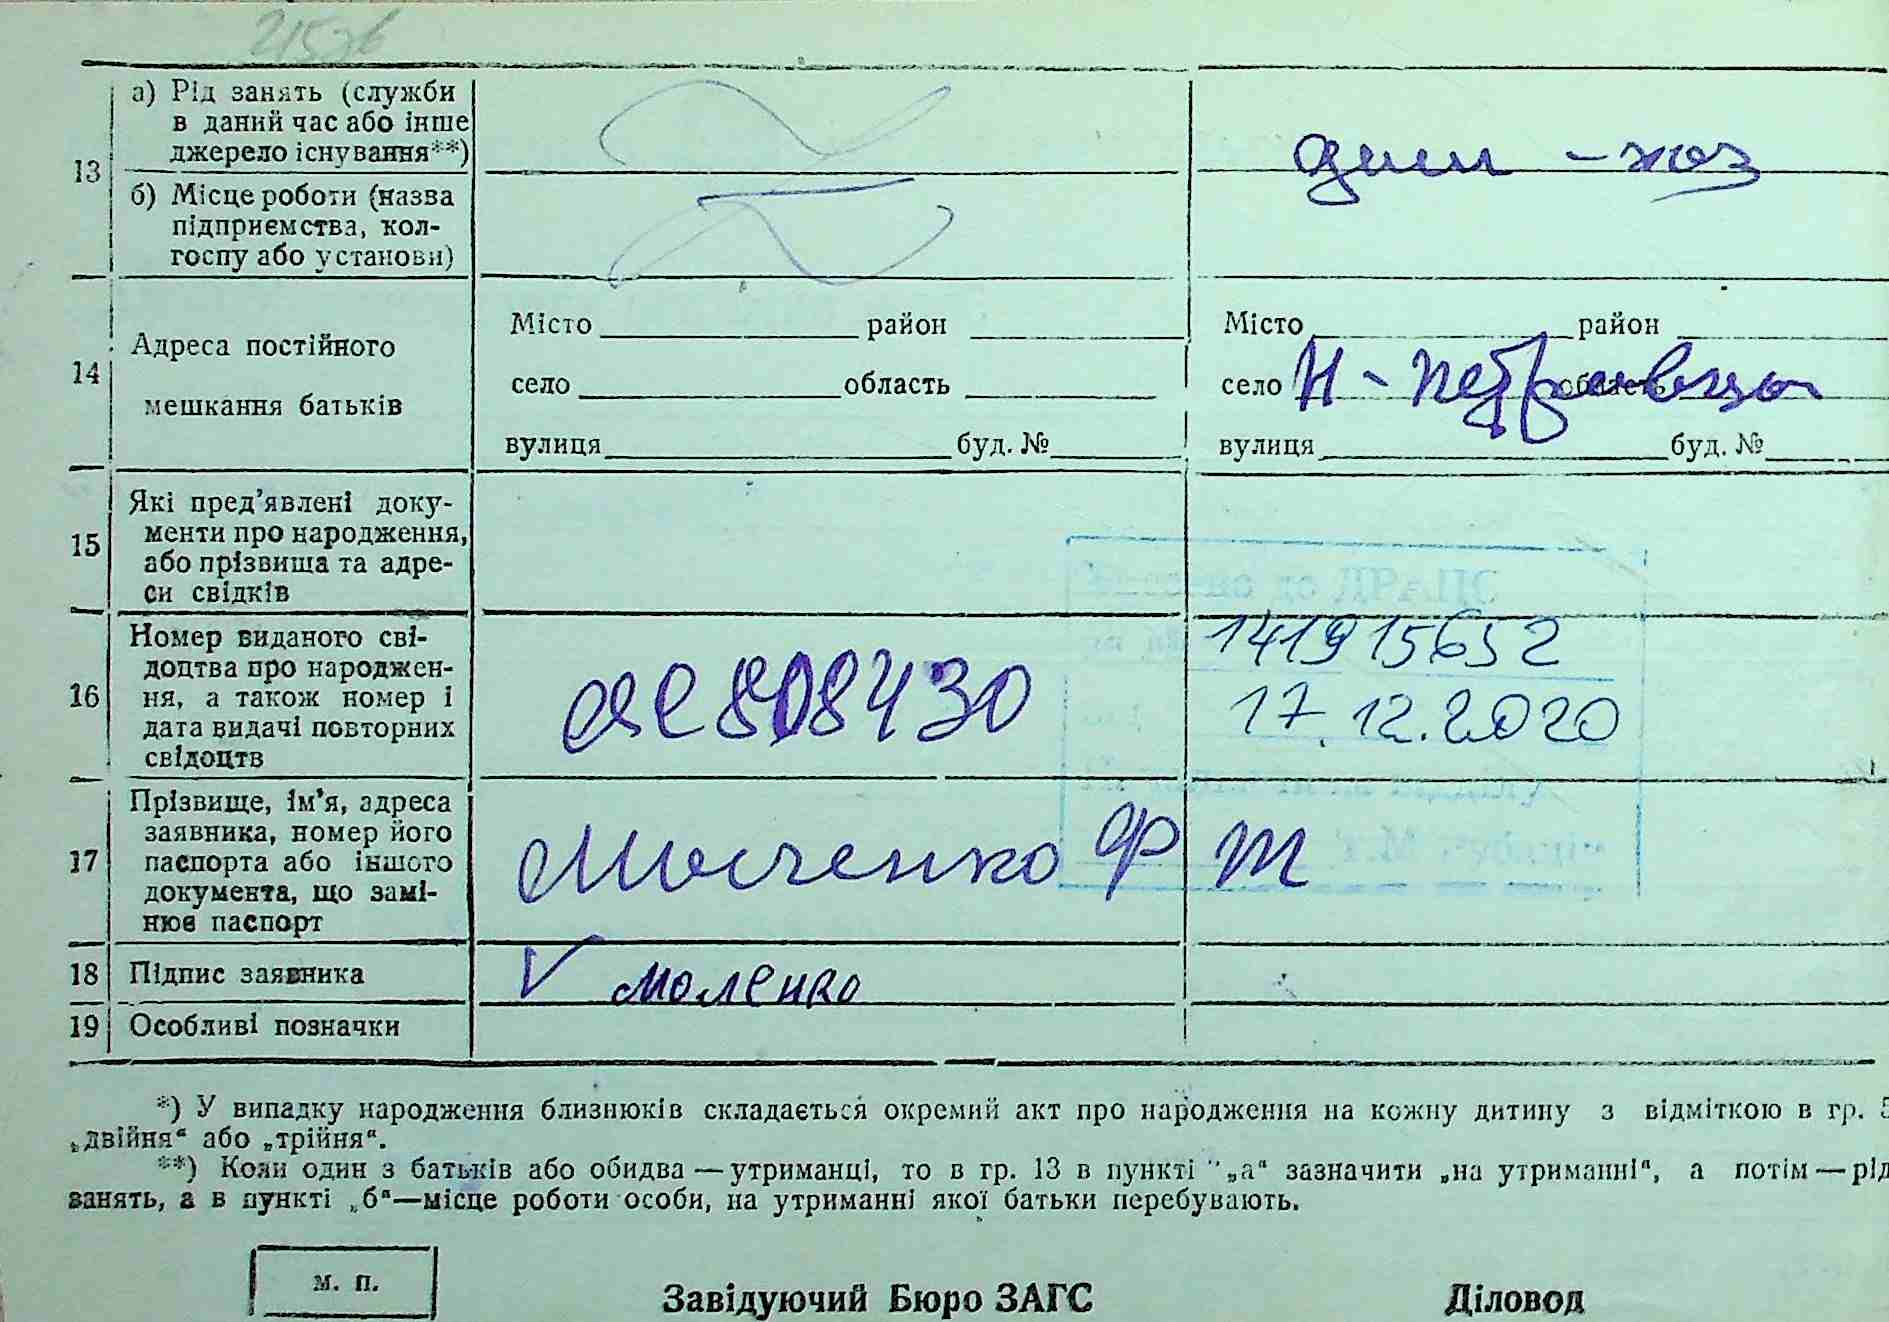 13
а) Рід занять (служби
в даний час або інше
джерело існування**)
дом - хоз
б) Місце роботи (назва
підприємства, кол-
госпу або установи)
14
Адреса постійного
мешкання батьків
Місто район
село область
вулиця буд. №
Місто район
село Н - Петровцы область
вулиця буд. №
15
Які пред'явлені доку-
менти про народження,
або прізвища та адре-
си свідків
16
Номер виданого сві-
доцтва про народжен-
ня, а також номер і
дата видачі повторних
свідоцтв
808430
Внесено до ДРАЦС
141915652
17.12.2020
17
Прізвище, ім'я, адреса
заявника, номер його
паспорта або іншого
документа, що замі-
нює паспорт
Ф Т
18
Підпис заявника
V
19
Особливі позначки
*) У випадку народження близнюків складається окремий акт про народження на кожну дитину з відміткою в гр. 5
„двійня“ або „трійня“.
**) Коли один з батьків або обидва — утриманці, то в гр. 13 в пункті „а“ зазначити „на утриманні“, а потім — рід
занять, а в пункті „б“—місце роботи особи, на утриманні якої батьки перебувають.
М. П.
Завідуючий Бюро ЗАГС
Діловод